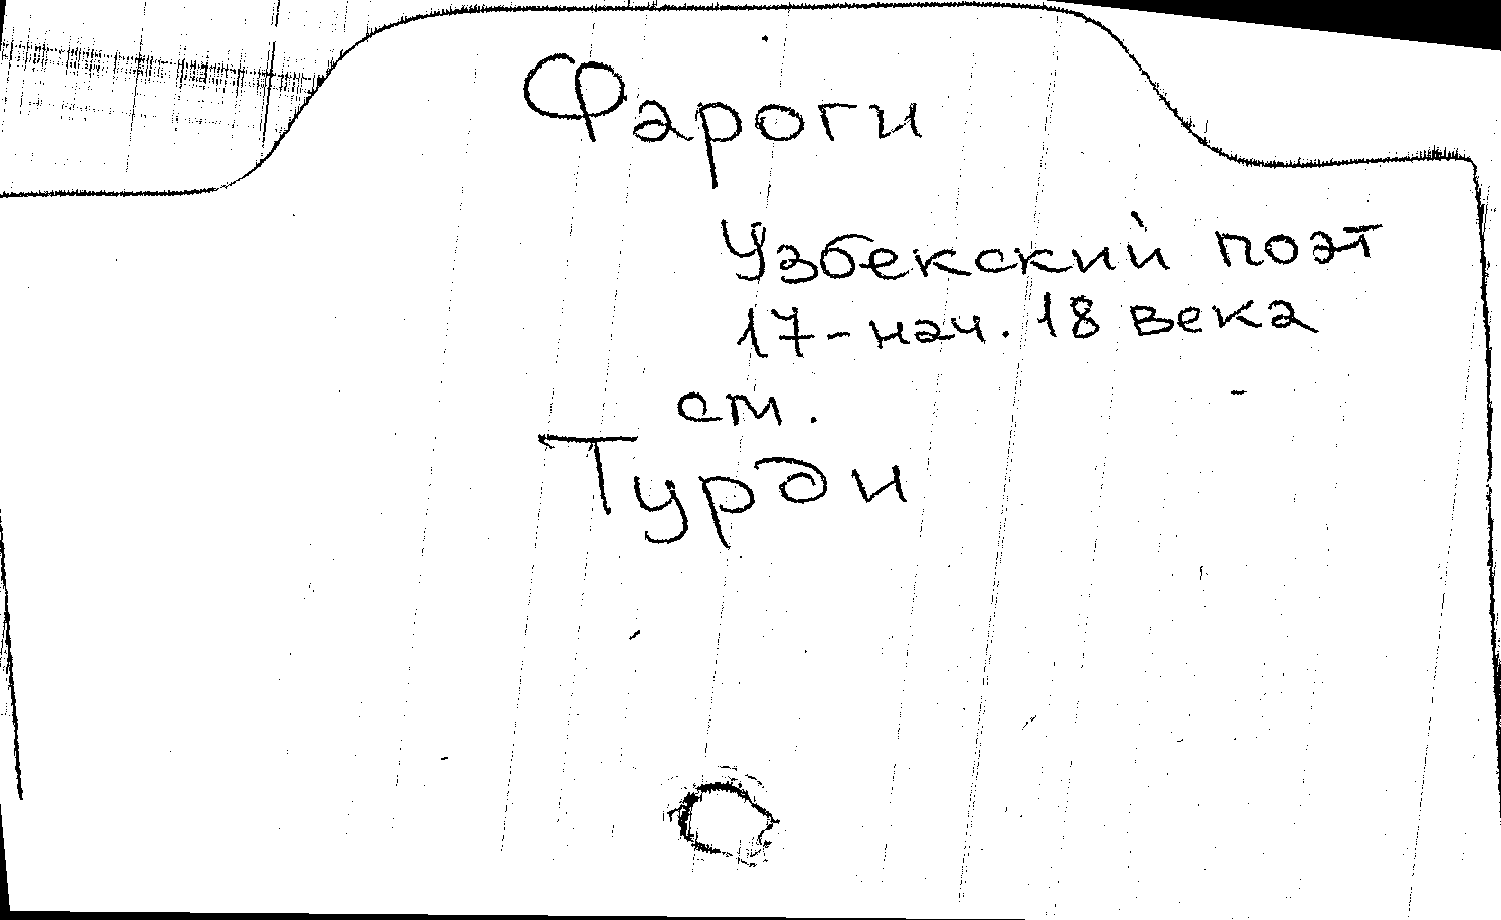 Фароги
Узбекский поэт
17-нач. 18 века
см.
Турди